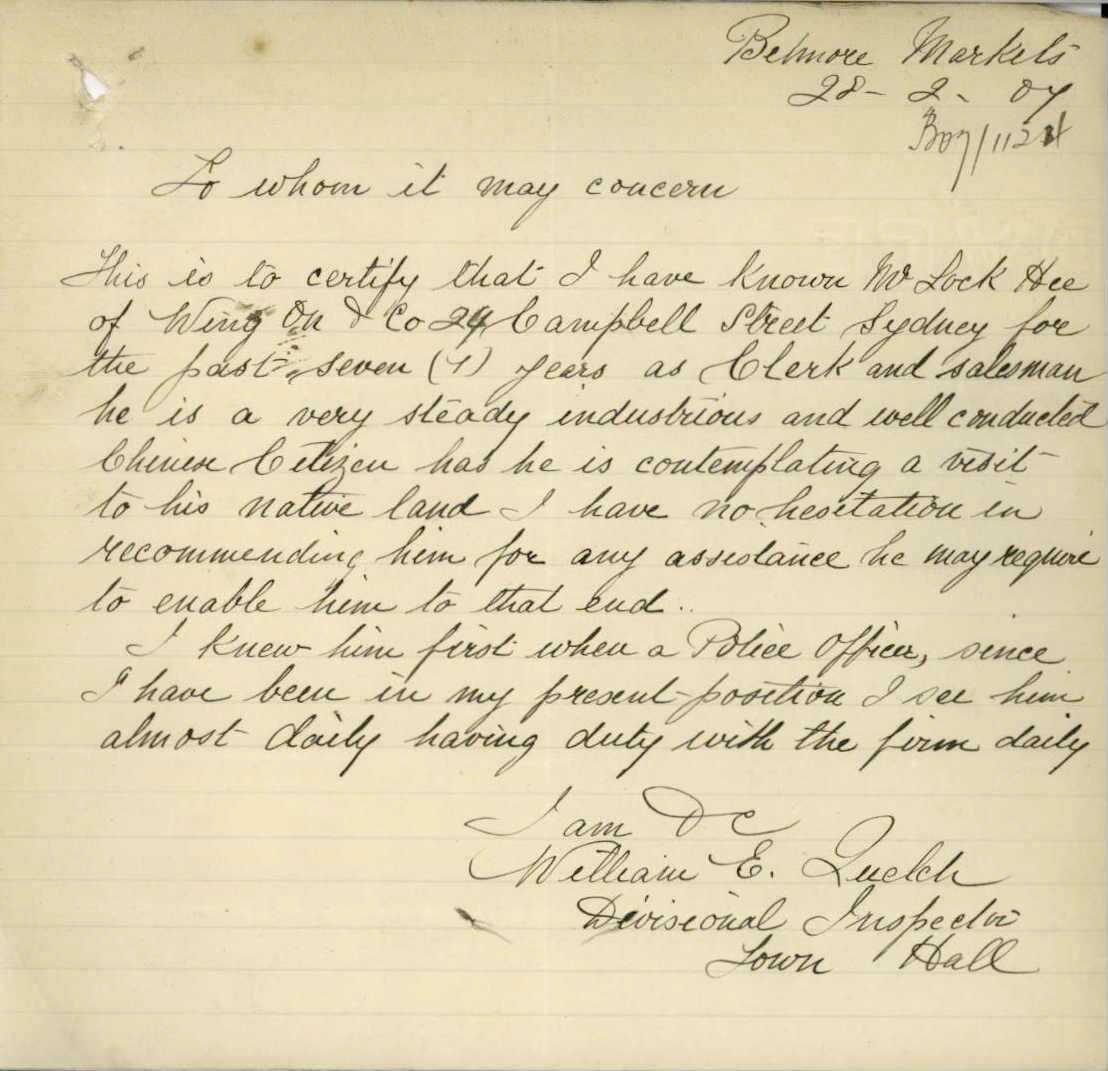 Belmore Markets
28 - 2 - 07
B07/1124
To whom it may concern
This is to certify that I have known Mr Lock Hee
of Wing On & Co 29 Campbell Street Sydney for
the past seven (7) years as Clerk and salesman
he is a very steady industrious and well conducted
Chinese Citizen has he is contemplating a visit
to his native land I have no hesitation in
recommending him for any assistance he may require
to enable him to that end..
I knew him first when a Police Officer, since
I have been in my present position I see him
almost daily having duty with the firm daily
I am &c
William E. Quelch
Divisional Inspector
Town Hall